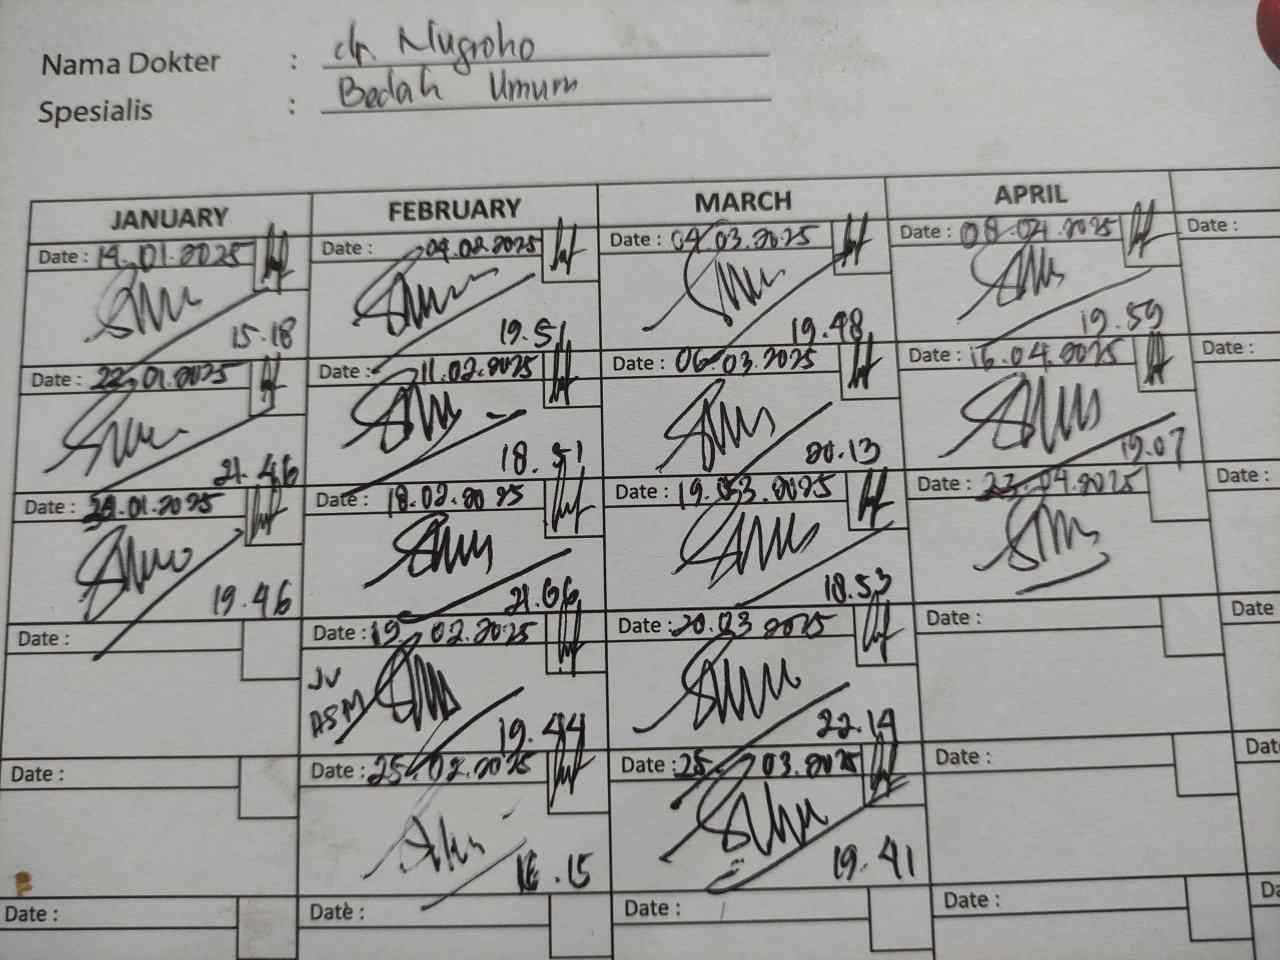 Nama Dokter : dr. Nugroho
Spesialis : Bedah Umum
JANUARY FEBRUARY MARCH APRIL
Date : 14.01.2025 Date : 04.02.2025 Date : 04.03.2025 Date : 08.04.2025 Date :
15.18 19.51 19.48 19.59
Date : 22.01.2025 Date : 11.02.2025 Date : 06.03.2025 Date : 16.04.2025 Date :
21.46 18.51 20.13 19.07
Date : 29.01.2025 Date : 18.02.2025 Date : 19.03.2025 Date : 23.04.2025 Date :
19.46 21.06 18.53
Date : Date : 19.02.2025 Date : 20.03.2025 Date : Date
JV
ASM
19.44 22.14
Date : Date : 25.02.2025 Date : 25.03.2025 Date : Dat
16.15 19.41
Date : Date : Date : Date :